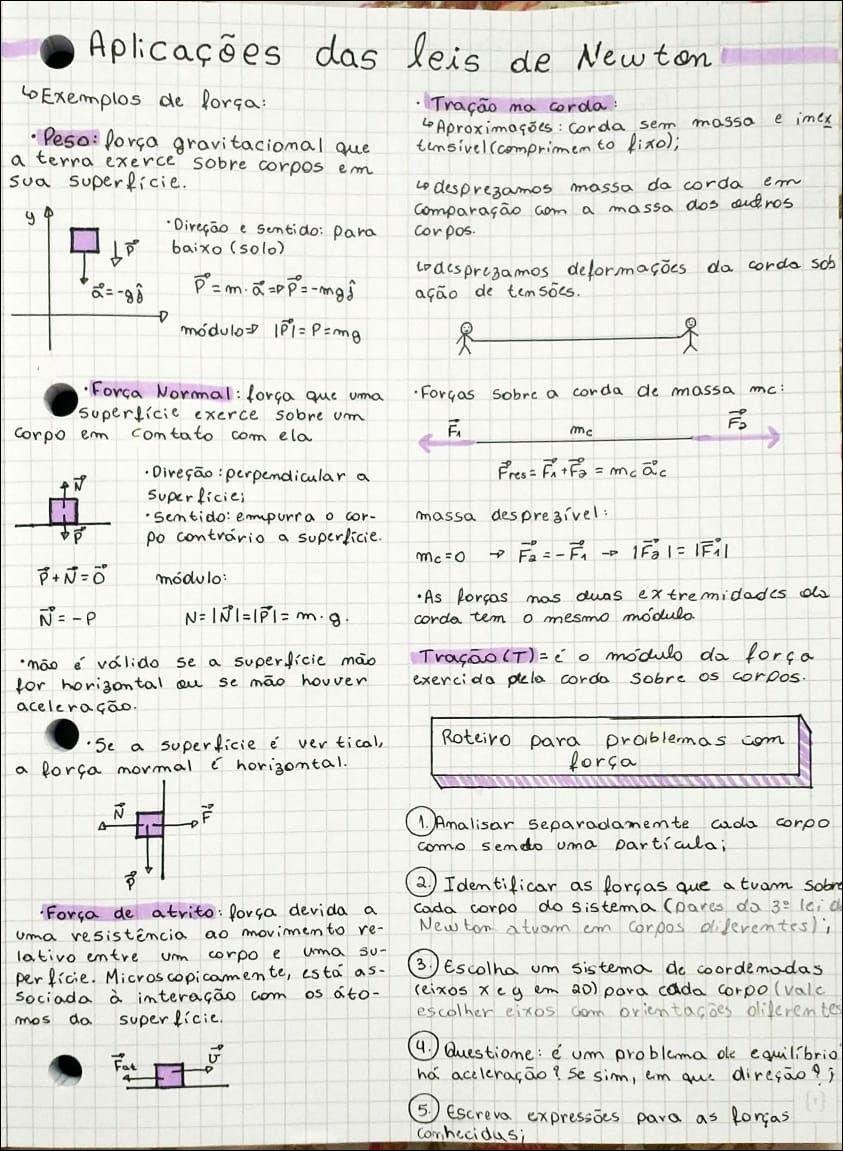 Aplicações das leis de Newton
↳Exemplos de força:
· Peso: força gravitacional que
a terra exerce sobre corpos em
sua superfície.
y
P⃗
a⃗=-gĵ
·Direção e sentido: para
baixo (solo)
P⃗=m·a⃗⇒P⃗=-mgĵ
módulo⇒ |P⃗|=P=mg
·Força Normal: força que uma
superfície exerce sobre um
corpo em contato com ela
N⃗
P⃗
·Direção: perpendicular a
superfície;
·Sentido: empurra o cor-
po contrário a superfície.
P⃗+N⃗=0⃗ módulo:
N⃗=-P N=|N⃗|=|P⃗|=m·g.
·não é válido se a superfície não
for horizontal ou se não houver
aceleração.
·Se a superfície é vertical,
a força normal é horizontal.
N⃗
F⃗
P⃗
·Força de atrito: força devida a
uma resistência ao movimento re-
lativo entre um corpo e uma su-
perfície. Microscopicamente, está as-
sociada à interação com os áto-
mos da superfície.
F⃗at
v⃗
· Tração na corda:
↳Aproximações: corda sem massa e inex
tensível (comprimento fixo);
↳desprezamos massa da corda em
comparação com a massa dos outros
corpos.
↳desprezamos deformações da corda sob
ação de tensões.
·Forças sobre a corda de massa mc:
F⃗₁ mc F⃗₂
F⃗res=F⃗₁+F⃗₂=mc a⃗c
massa desprezível:
mc=0 → F⃗₂=-F⃗₁ → |F⃗₂|=|F⃗₁|
·As forças nas duas extremidades da
corda tem o mesmo módulo.
Tração(T)=é o módulo da força
exercida pela corda sobre os corpos.
Roteiro para problemas com
força
1. Analisar separadamente cada corpo
como sendo uma partícula;
2. Identificar as forças que atuam sobre
cada corpo do sistema (pares da 3ª lei d
Newton atuam em corpos diferentes);
3. Escolha um sistema de coordenadas
(eixos x e y em 2D) para cada corpo (vale
escolher eixos com orientações diferentes
4. Questione: é um problema de equilíbrio
há aceleração? Se sim, em que direção?;
5. Escreva expressões para as forças
conhecidas;